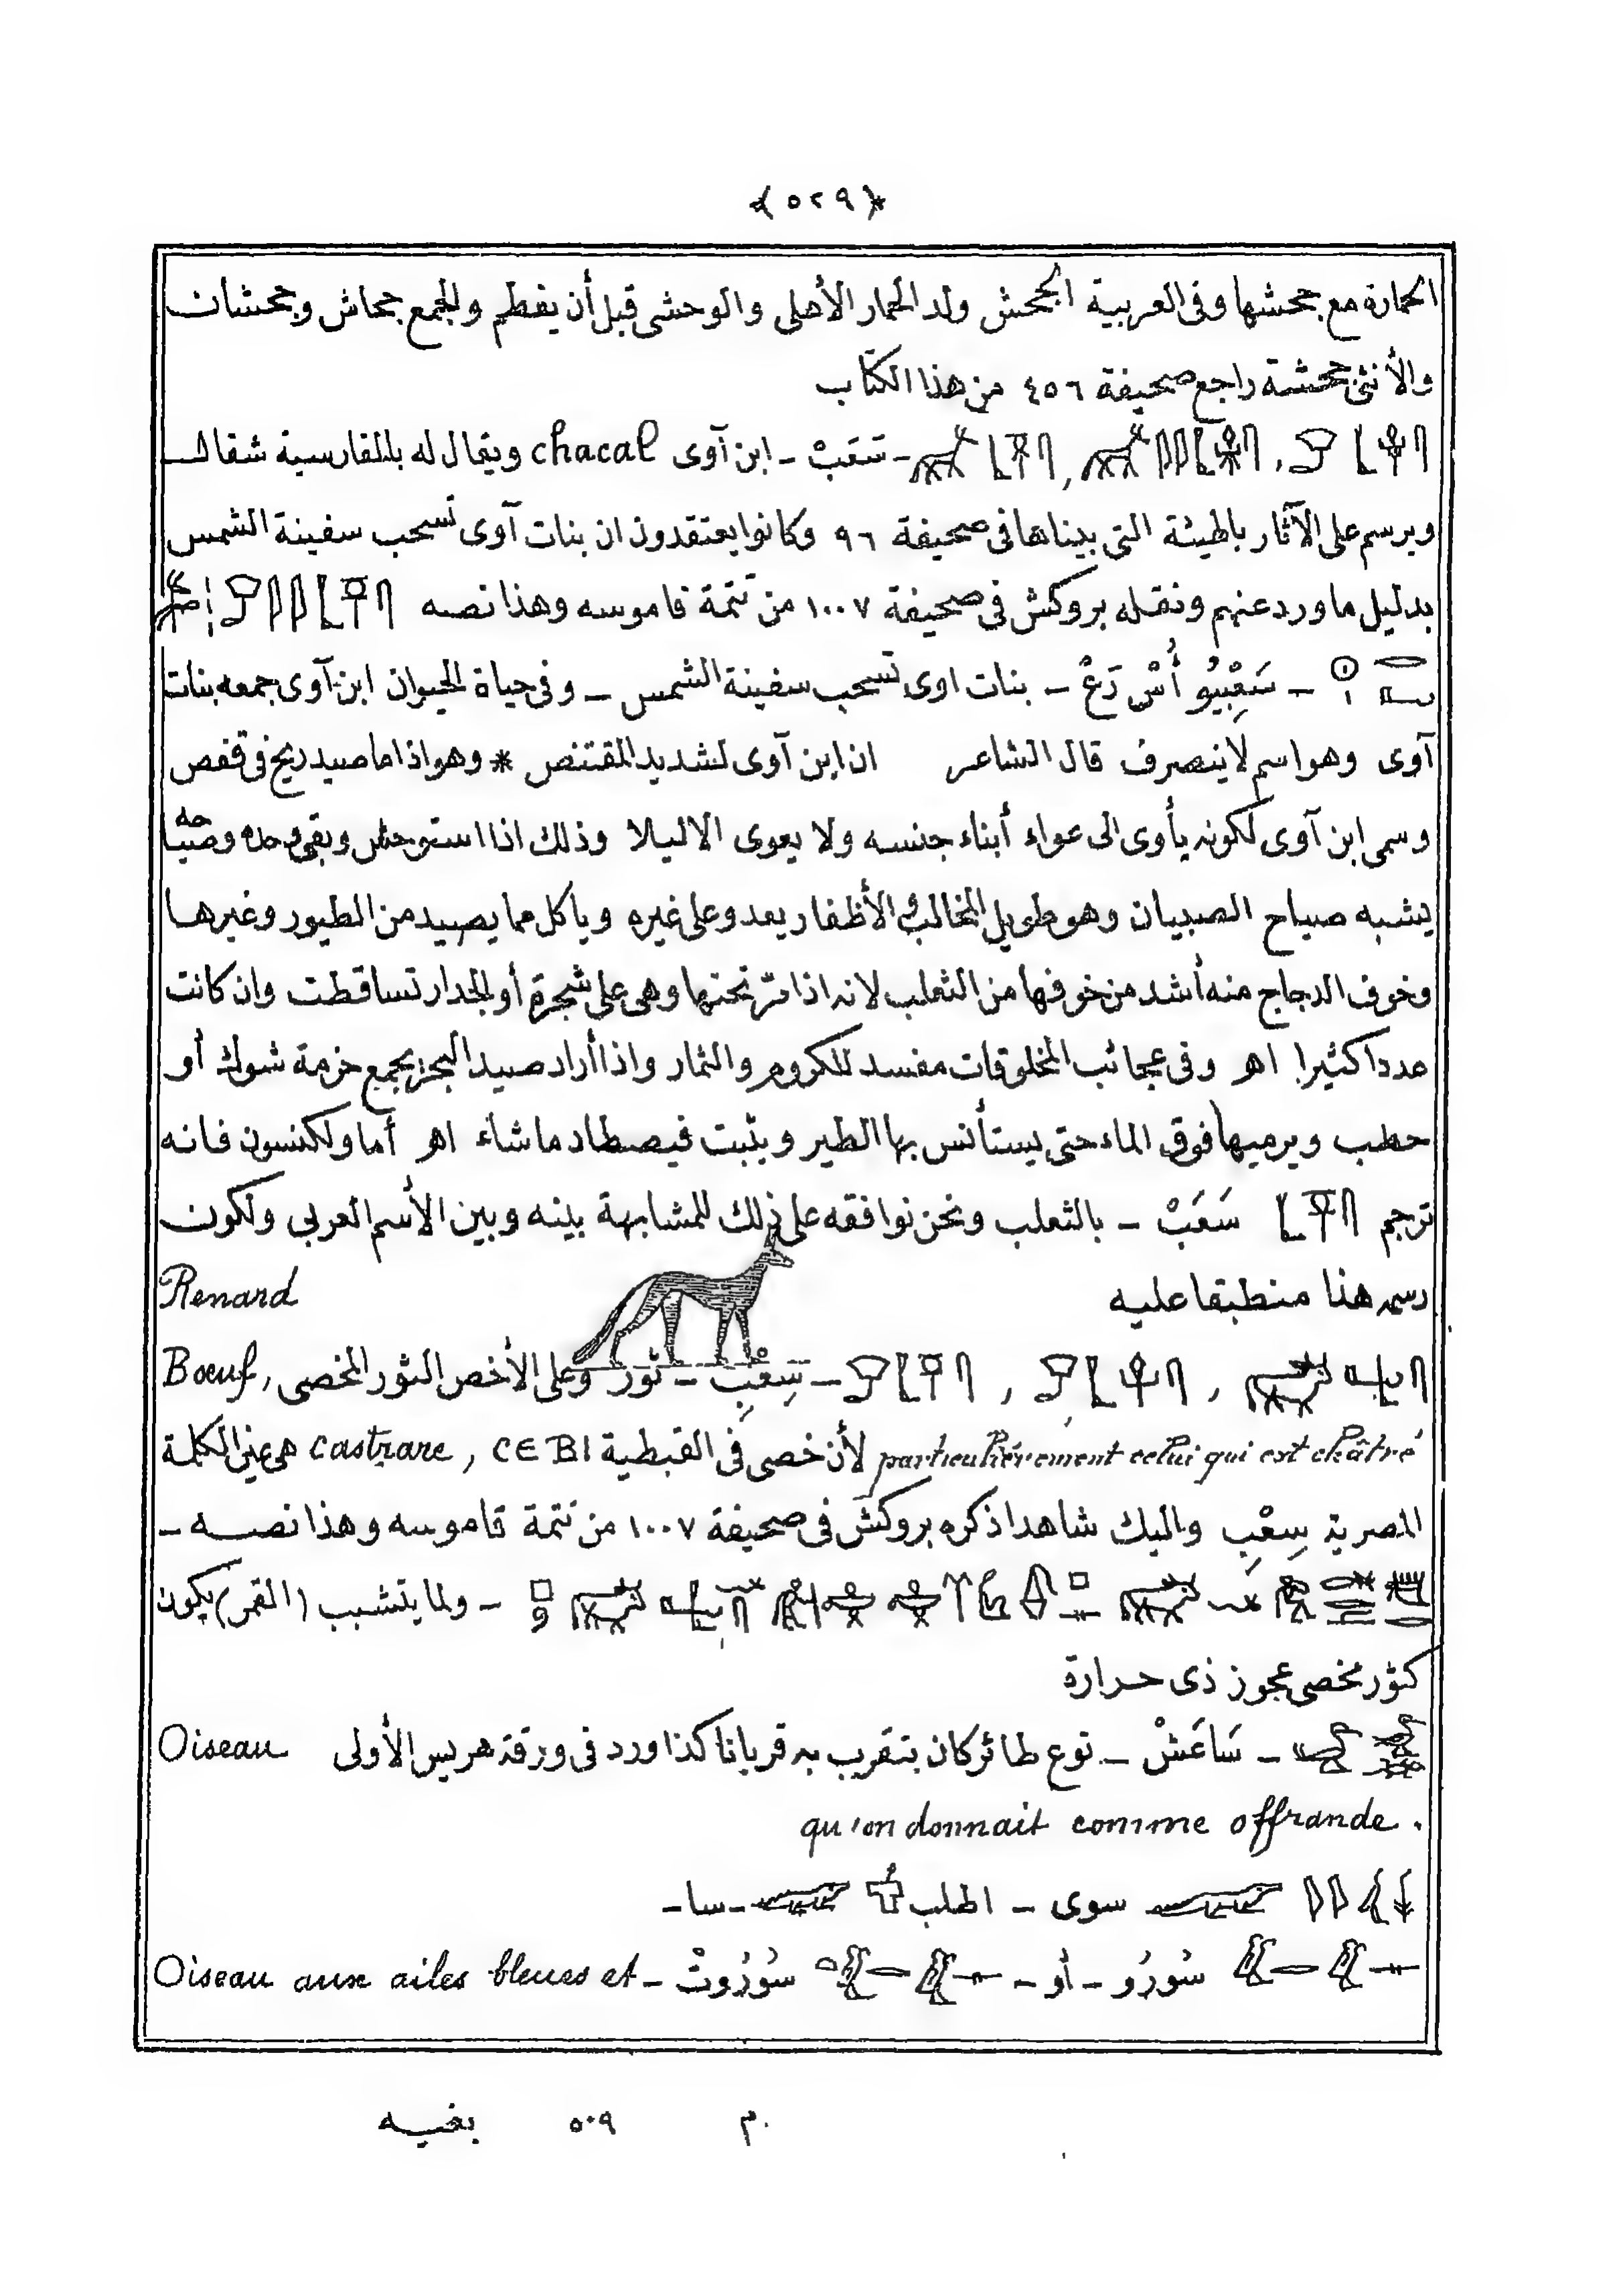 ﴿٥٢٩﴾
الحمارة مع جحشها وفى العربية الجحش ولد الحمار الأهلى والوحشى قبل أن يفطم والجمع جحاش وجحشان
والأنثى جحشة راجع صحيفة ٤٥٦ من هذا الكتاب
سَعَبْ - ابن آوى chacal ويقال له بالفارسية شغال
ويرسم على الآثار بالهيئة التى بيناها فى صحيفة ٩٦ وكانوا يعتقدون ان بنات آوى تسحب سفينة الشمس
بدليل ما ورد عنهم ونقله بروكش فى صحيفة ١٠٠٧ من تتمة قاموسه وهذا نصه
- سَعْبِيُو أُسْ رَعْ - بنات اوى تسحب سفينة الشمس - وفى حياة الحيوان ابن آوى جمعه بنات
آوى وهو اسم لا ينصرف قال الشاعر ان ابن آوى لشديد المقتنص * وهو اذا ما صيد ريح فى قفص
وسمى ابن آوى لكونه يأوى الى عواء أبناء جنسه ولا يعوى الا ليلا وذلك اذا استوحش وبقى وحده وصياحه
يشبه صياح الصبيان وهو طويل المخالب والأظفار يعدو على غيره وياكل مما يصيد من الطيور وغيرها
وخوف الدجاج منه أشد من خوفها من الثعلب لانه اذا مرّ تحتها وهى على شجرة أو الجدار تساقطت وان كانت
عددا كثيرا اهـ وفى عجائب المخلوقات مفسد للكروم والثمار واذا أراد صيد البحر يجمع حزمة شوك أو
حطب ويرميها فوق الماء حتى يستأنس بها الطير ويثبت فيصطاد ما شاء اهـ أما ولكنسون فانه
ترجم سَعَبْ - بالثعلب ونحن نوافقه على ذلك للمشابهة بينه وبين الأسم العربى ولكون
رسمه هذا منطبقا عليه Renard
- سِعْبِ - ثور وعلى الأخص الثور المخصى Bœuf,
particulièrement celui qui est châtré لأن خصى فى القبطية castrare, CEBI هى عين الكلمة
المصرية سِعْبِ واليك شاهدا ذكره بروكش فى صحيفة ١٠٠٧ من تتمة قاموسه وهذا نصه -
- ولما يتشبب (القمر) يكون
كثور مخصى عجوز ذى حرارة
- سَاعَشْ - نوع طائر كان يتقرب به قربانا كذا ورد فى ورقة هريس الأولى Oiseau
qu'on donnait comme offrande.
سوى - اطلب - سا -
سُورُو - أو - سُورُوتْ - Oiseau aux ailes bleues et
م ٥٠٩ بغيه